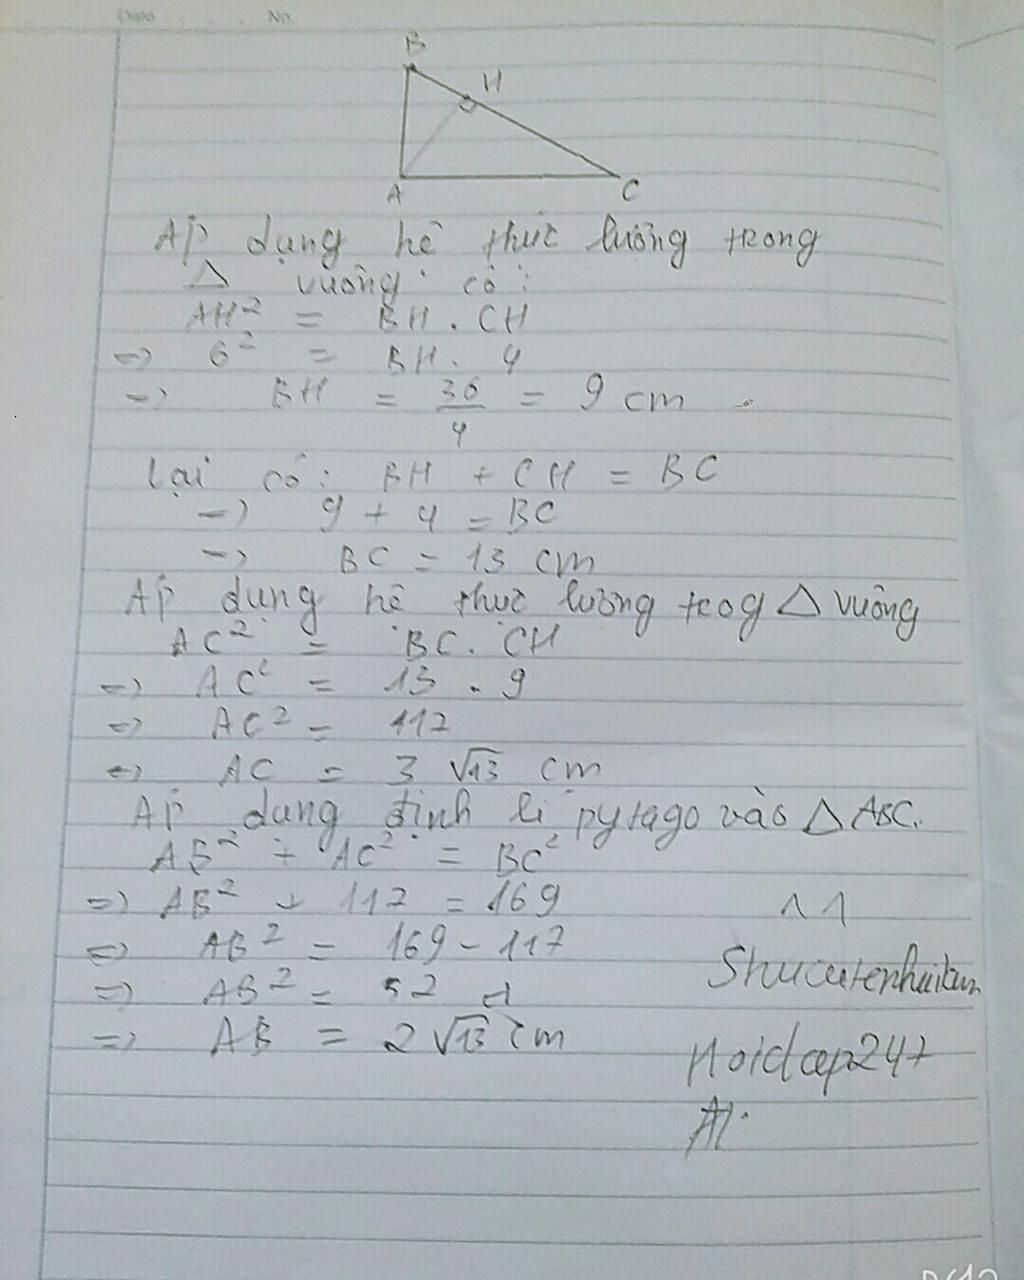 Date No.
B
H
A
C
Áp dụng hệ thức lượng trong
Δ vuông có:
AH² = BH . CH
=> 6² = BH . 4
=> BH = 36/4 = 9 cm
Lại có: BH + CH = BC
=> 9 + 4 = BC
=> BC = 13 cm
Áp dụng hệ thức lượng trog Δ vuông
AC² = BC . CH
=> AC² = 13 . 9
=> AC² = 117
=> AC = 3 √13 cm
Áp dụng định lí pytago vào Δ ABC.
AB² + AC² = BC²
=> AB² + 117 = 169
=> AB² = 169 - 117
=> AB² = 52
=> AB = 2 √13 cm
Hoidap247